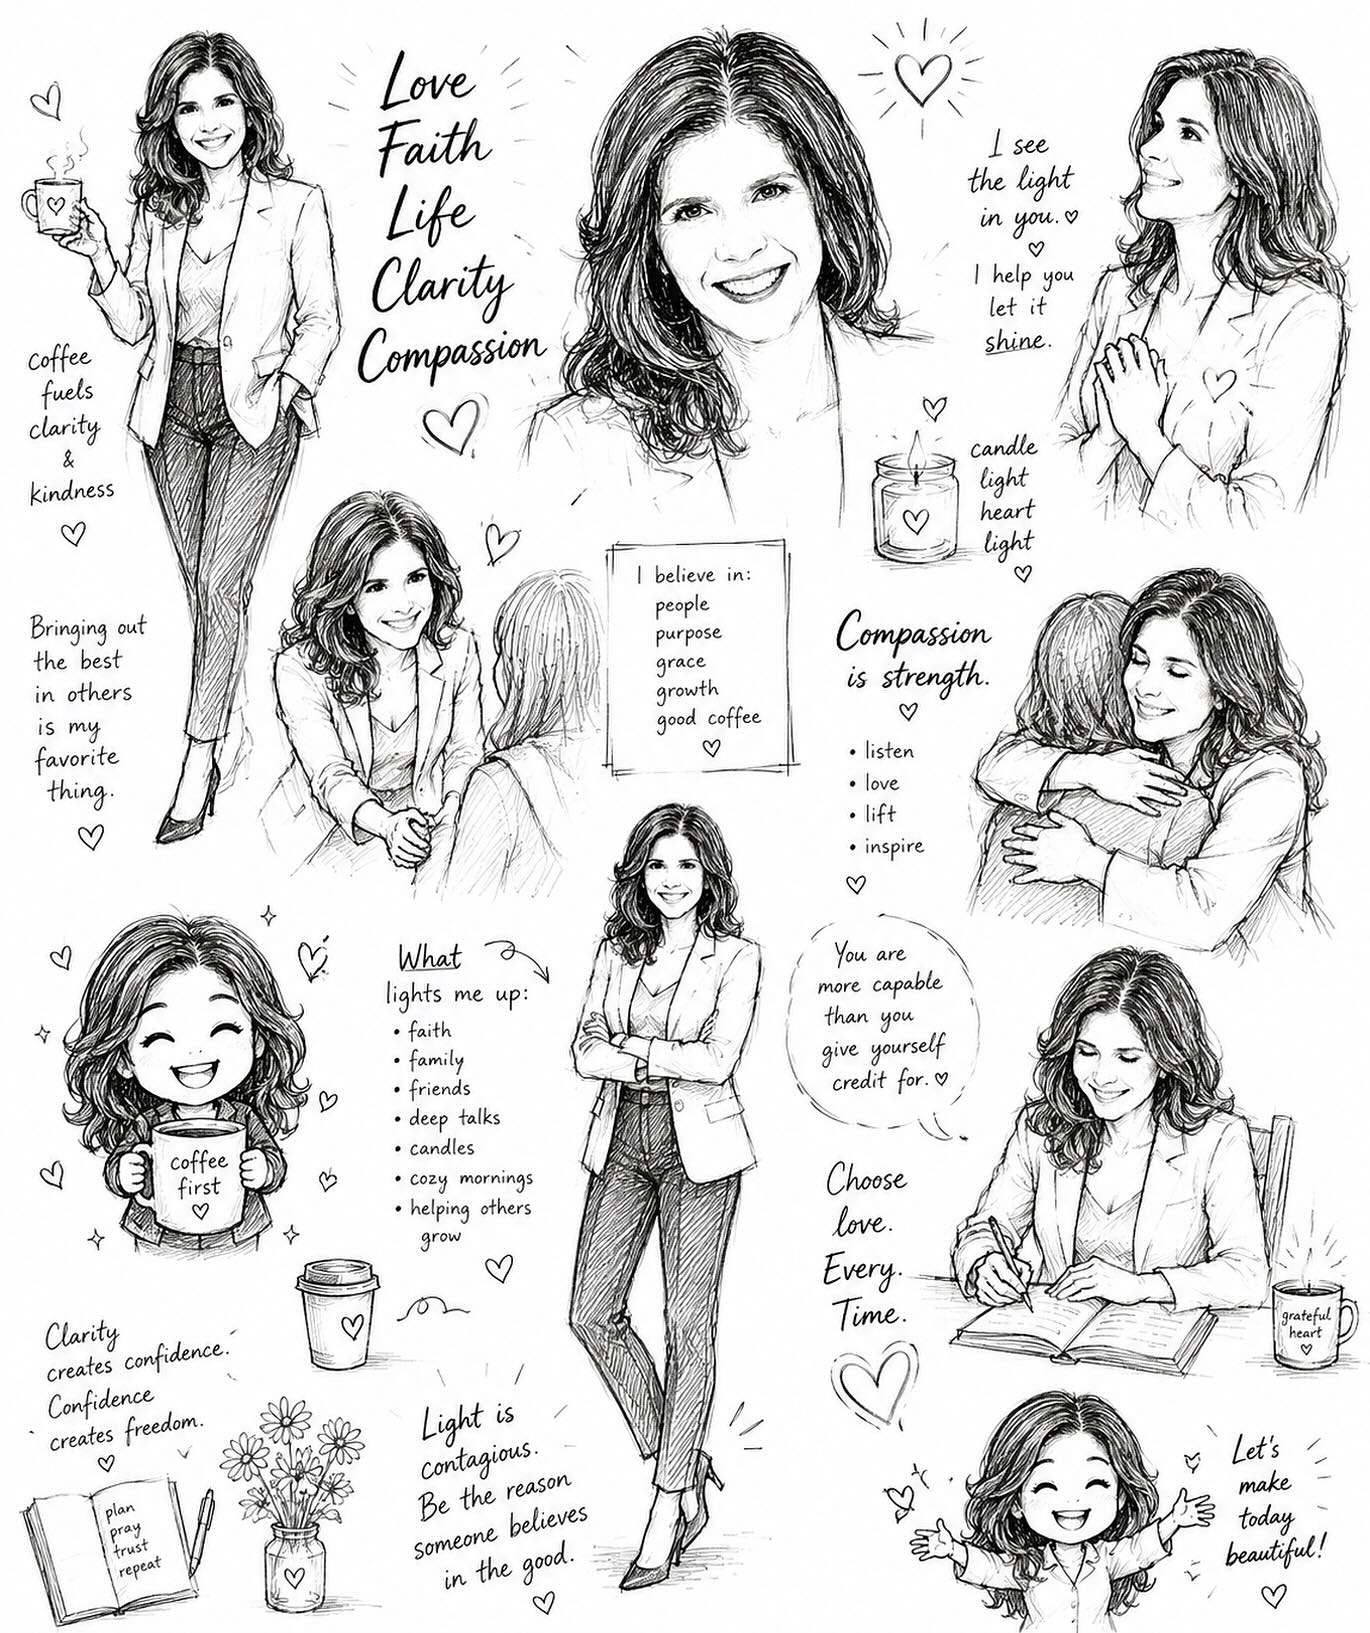 Love
Faith
Life
Clarity
Compassion
I see
the light
in you.
I help you
let it
shine.
coffee
fuels
clarity
&
kindness
candle
light
heart
light
I believe in:
people
purpose
grace
growth
good coffee
Bringing out
the best
in others
is my
favorite
thing.
Compassion
is strength.
• listen
• love
• lift
• inspire
coffee
first
What
lights me up:
• faith
• family
• friends
• deep talks
• candles
• cozy mornings
• helping others
grow
You are
more capable
than you
give yourself
credit for.
Choose
love.
Every.
Time.
grateful
heart
Clarity
creates confidence.
Confidence
creates freedom.
plan
pray
trust
repeat
Light is
contagious.
Be the reason
someone believes
in the good.
Let's
make
today
beautiful!